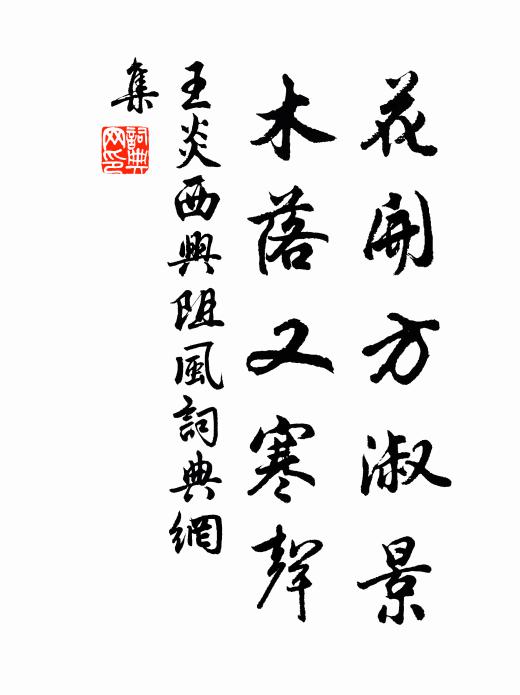 花開方淑景
木落又寒聲
王炎西興阻風詞典網
集
詞典網印